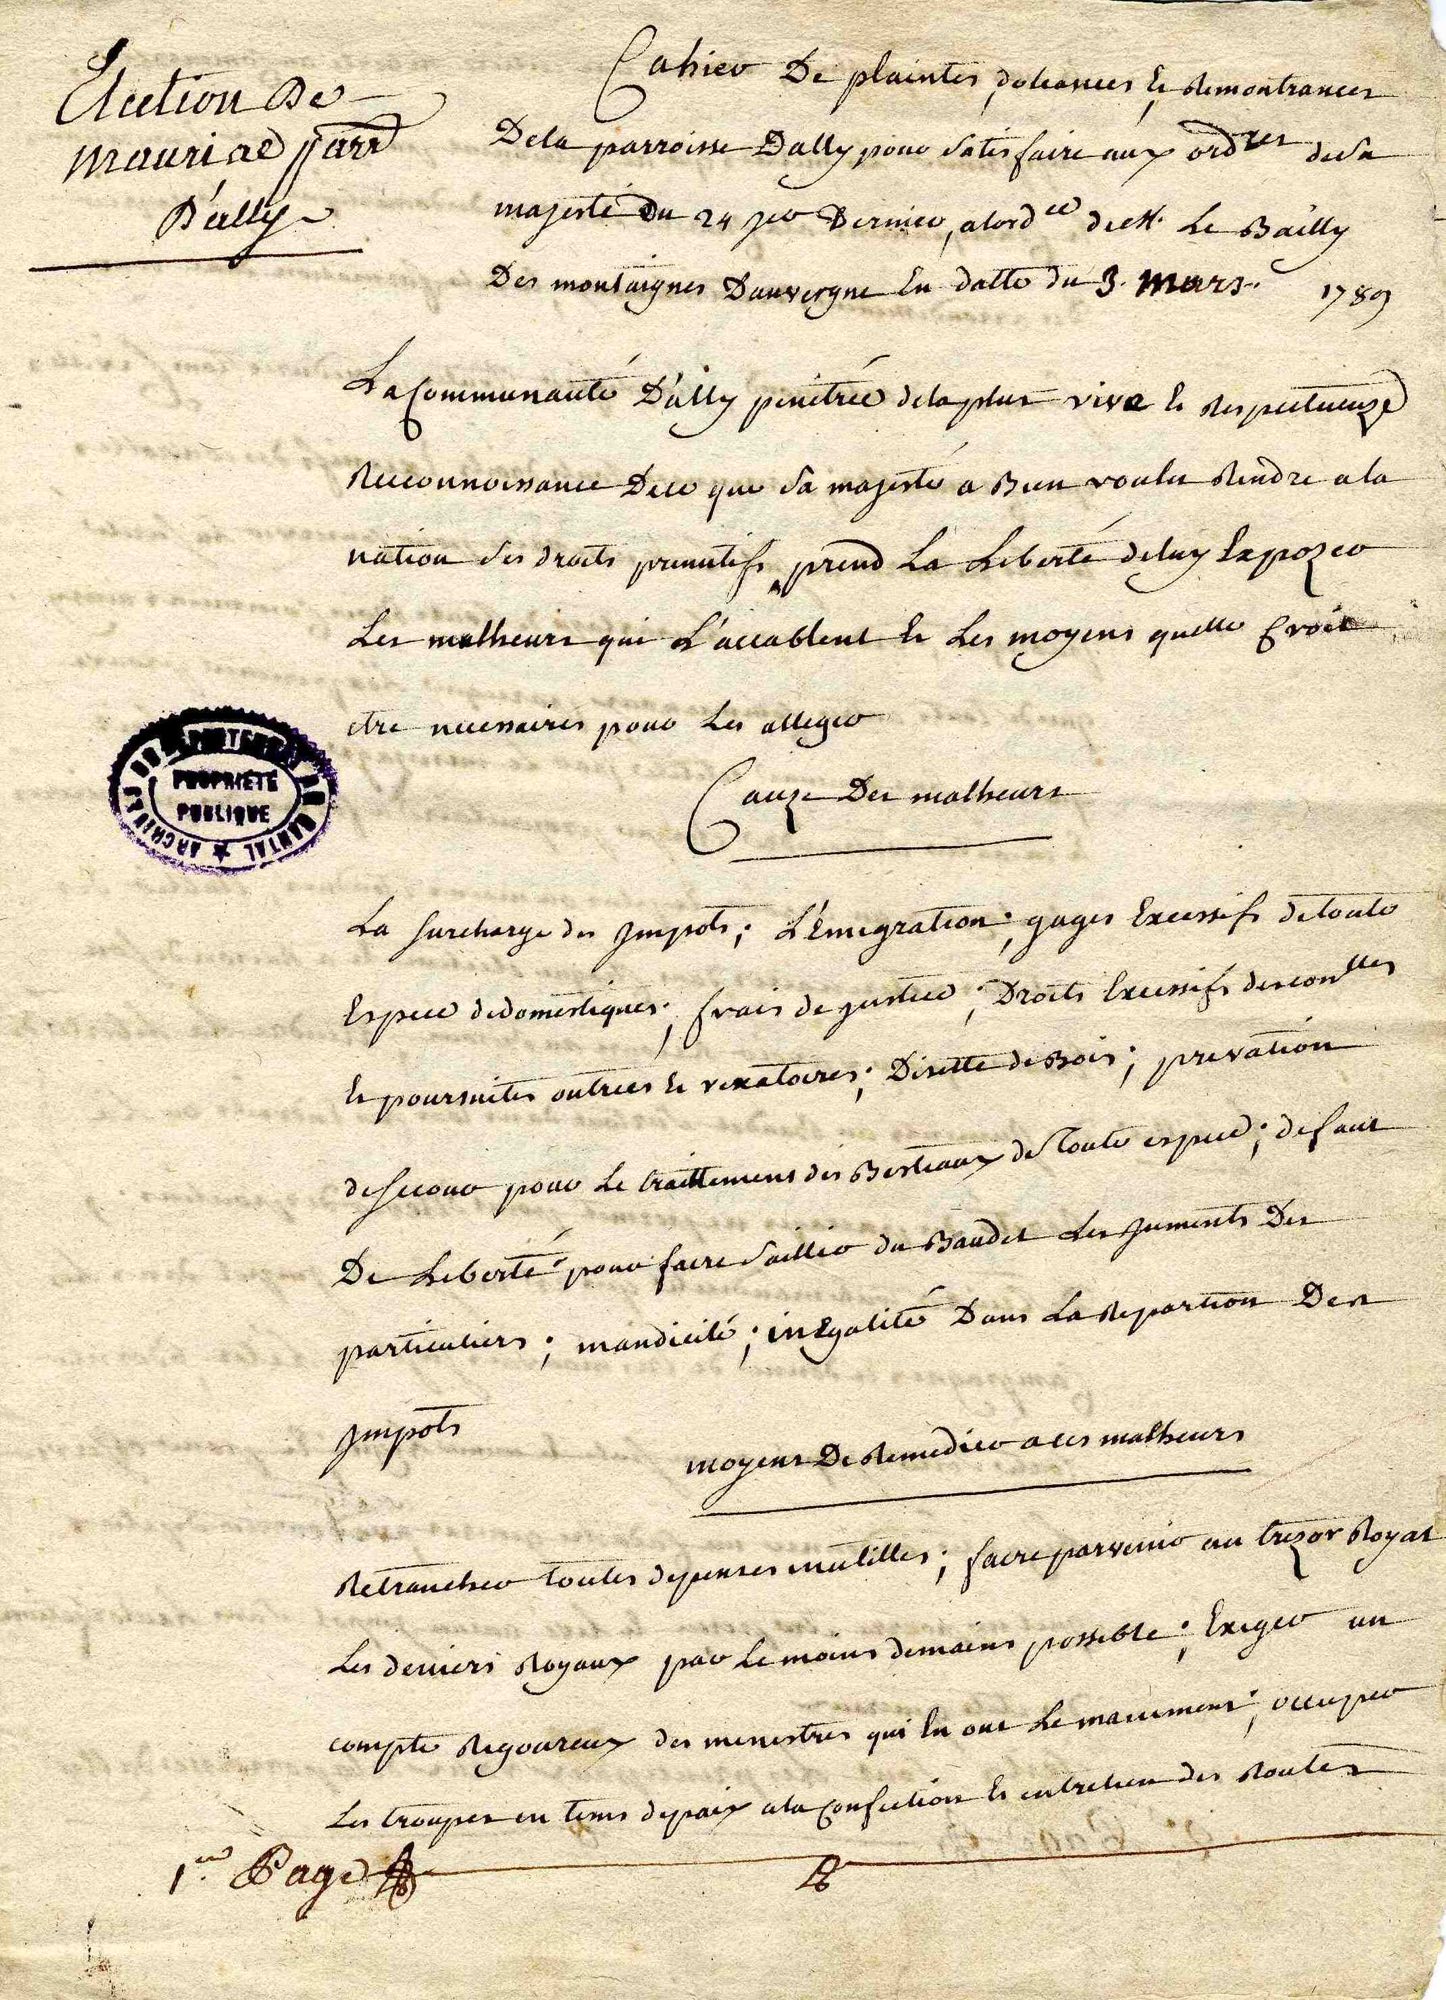 Election De
mauriac parr
D'ally
Cahier De plaintes, doleances, et Remontrances
De la parroisse Dally pour satisfaire aux ordres de sa
majesté du 24 jer Dernier, a lordce de M. Le Bailly
Des montaignes Dauvergne En datte du 3. mars. 1789
La Communauté D'ally penétrée de la plus vive et Respectueuze
Reconnoissance De ce que sa majesté a Bien voulu Rendre a la
nation ses droits primitifs, prend La Liberté de luy Expozer
Les malheurs qui L'accablent et Les moyens quelle Croit
etre necessaires pour Les alleger
Cauze Des malheurs
La surcharge des Impots; L'Emigration; gages Excessifs de toute
Espece de domestiques; frais de justice; Droits Excessifs des conlles
et poursuites outrées et vexatoires; Disette de Bois; privation
de secour pour Le traittement des Bestiaux de Toute espece; defaut
De Liberté pour faire saillir du Baudet Les Juments Des
particuliers; mandicité; inEgalité Dans La Repartion Des
Impots
moyens De Remedier a ces malheurs
Retrancher toutes depenses inutilles; faire parvenir au trezor Royal
Les deniers Royaux par Le moins de mains possible; Exiger un
compte Rigoureux des ministres qui En ont Le maniment; occuper
Les troupes en tems de paix a la Confection et entretien des Routes
1ere Page
ARCHIVES DU DEPARTEMENT DU CANTAL
PROPRIÉTÉ
PUBLIQUE